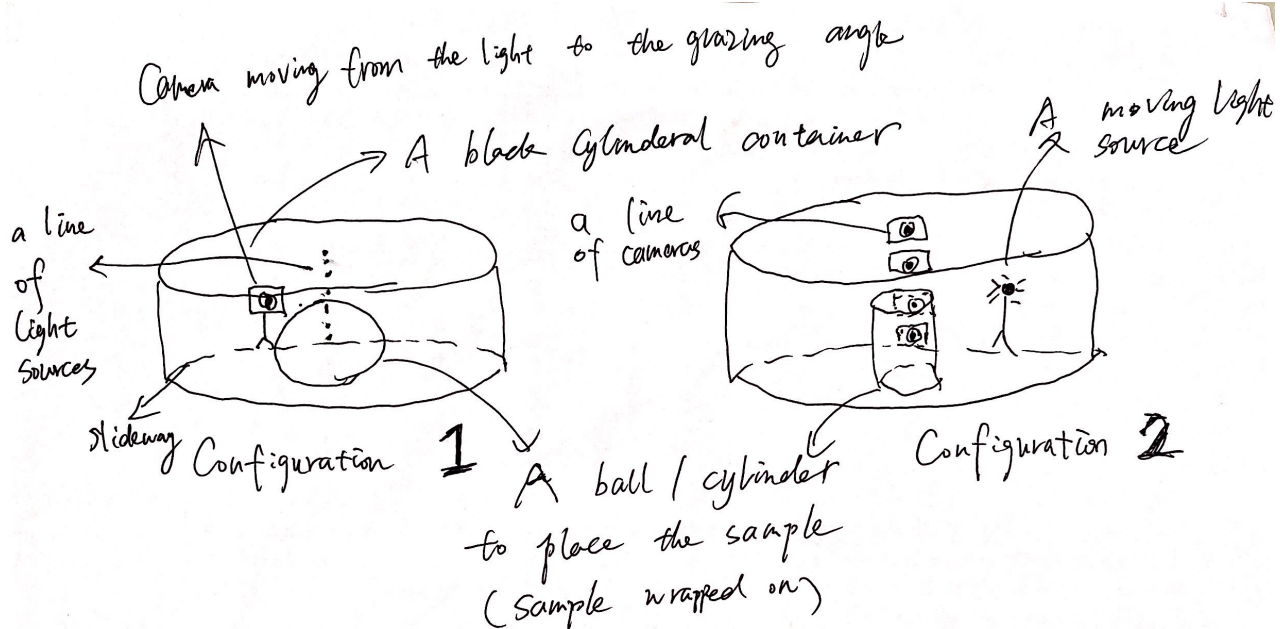 Camera moving from the light to the grazing angle
A black Cylinderal container
A moving light
source
a line
of
light
sources
a line
of cameras
slideway
Configuration 1
Configuration 2
A ball / cylinder
to place the sample
(sample wrapped on)